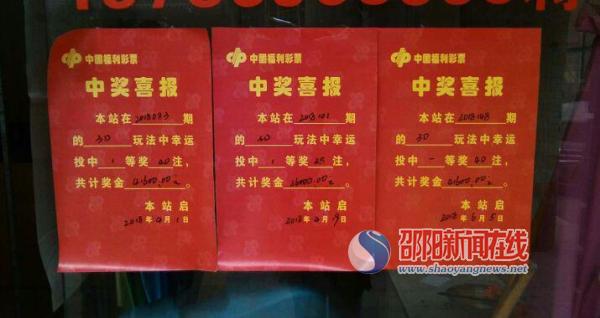 中国福利彩票
中奖喜报
本站在2018083期
的3D玩法中幸运
投中1等奖40注,
共计奖金41600.00元。
本站启
2018年4月1日
中国福利彩票
中奖喜报
本站在2018101期
的3D玩法中幸运
投中1等奖25注,
共计奖金26000.00元。
本站启
2018年4月19日
中国福利彩票
中奖喜报
本站在2018148期
的3D玩法中幸运
投中一等奖40注,
共计奖金41600.00元。
本站启
2018年6月5日
邵阳新闻在线
www.shaoyangnews.net